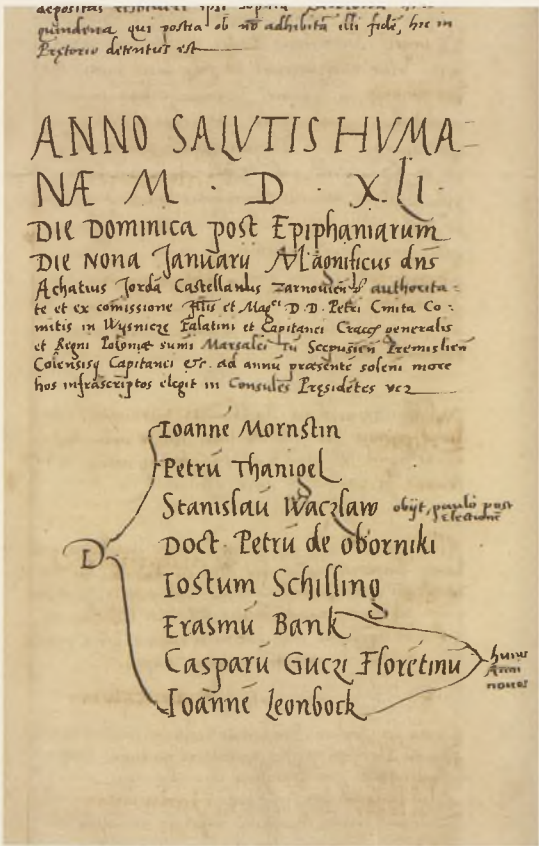 depositas
quindena qui postea ob nō adhibitā illi fidē, hic in
Prętorio detentus est
ANNO SALVTIS HVMA=
NÆ M · D · XLI·
DIE DOMINICA post Epiphaniarum
DIE NONA Januarii Magnificus dns
Achatius Jorda Castellanus authorita=
te et ex comissione Illis et Magci D. D. Petri Cmita Co:
mitis in Wysnicze Palatini et Capitanei Cracoṿ generalis
et Regni Poloniæ sumi Marsalci Scepusieñ Premislieñ
Colensisq Capitanei &c. ad annū præsente soleni more
hos infrascriptos elegit in Consules Pręsidētes vcz
Ioannē Mornstin
Petrū Thanigel
Stanislaū Waczlaw obijt paulo post Electionē
D Doct. Petrū de oborniki
Iostum Schilling
Erasmū Bank
Casparū Guczi Floretinū huius Anni novos
Ioannē Leonbock